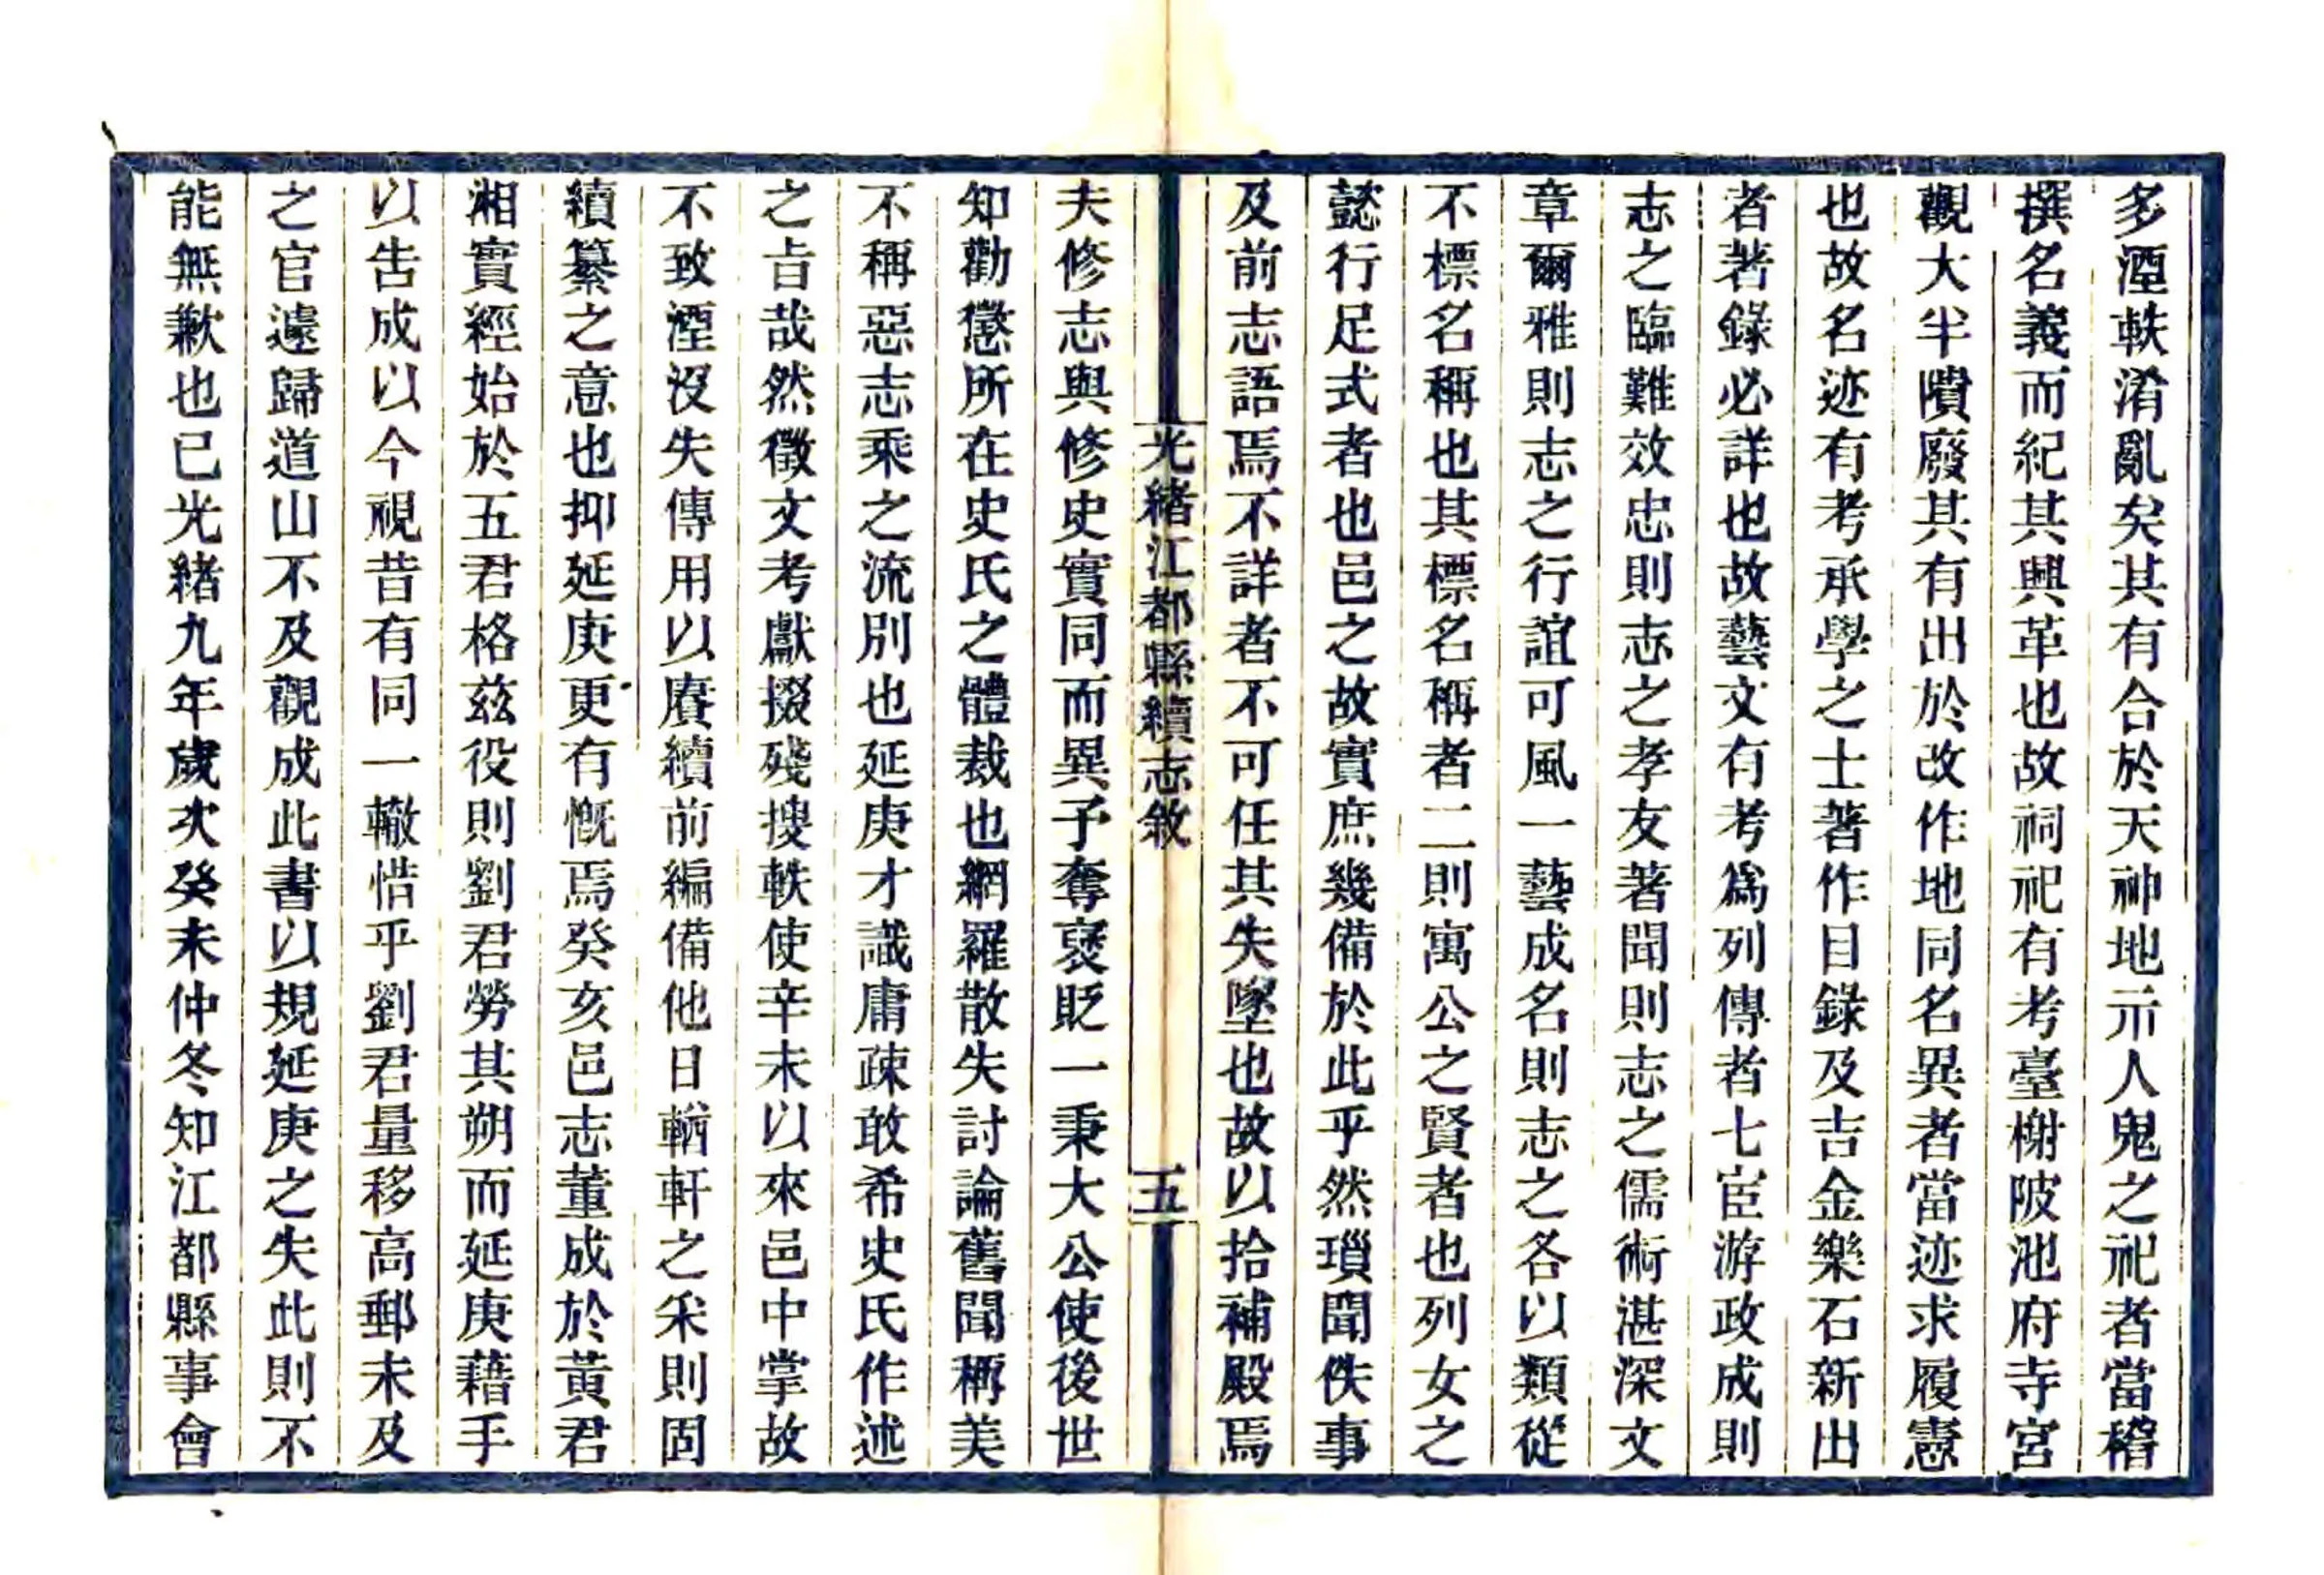 多湮軼淆亂矣其有合於天神地示人鬼之祀者當稽
撰名義而紀其興革也故祠祀有考臺榭陂池府寺宮
觀大半隤廢其有出於改作地同名異者當迹求履憲
也故名迹有考承學之士著作目錄及吉金樂石新出
者著錄必詳也故藝文有考爲列傳者七宦游政成則
志之臨難效忠則志之孝友著聞則志之儒術湛深文
章爾雅則志之行誼可風一藝成名則志之各以類從
不標名稱也其標名稱者二則寓公之賢者也列女之
懿行足式者也邑之故實庶幾備於此乎然瑣聞佚事
及前志語焉不詳者不可任其失墜也故以拾補殿焉
光緒江都縣續志敘
五
夫修志與修史實同而異予奪褒貶一秉大公使後世
知勸懲所在史氏之體裁也網羅散失討論舊聞稱美
不稱惡志乘之流別也延庚才識庸疎敢希史氏作述
之㫖哉然徵文考獻掇殘搜軼使辛未以來邑中掌故
不致湮沒失傳用以賡續前編備他日輶軒之采則固
續纂之意也抑延庚更有慨焉癸亥邑志董成於黃君
湘實經始於五君格茲役則劉君勞其朔而延庚藉手
以告成以今視昔有同一轍惜乎劉君量移高郵未及
之官遽歸道山不及觀成此書以規延庚之失此則不
能無歉也已光緒九年歲次癸未仲冬知江都縣事會